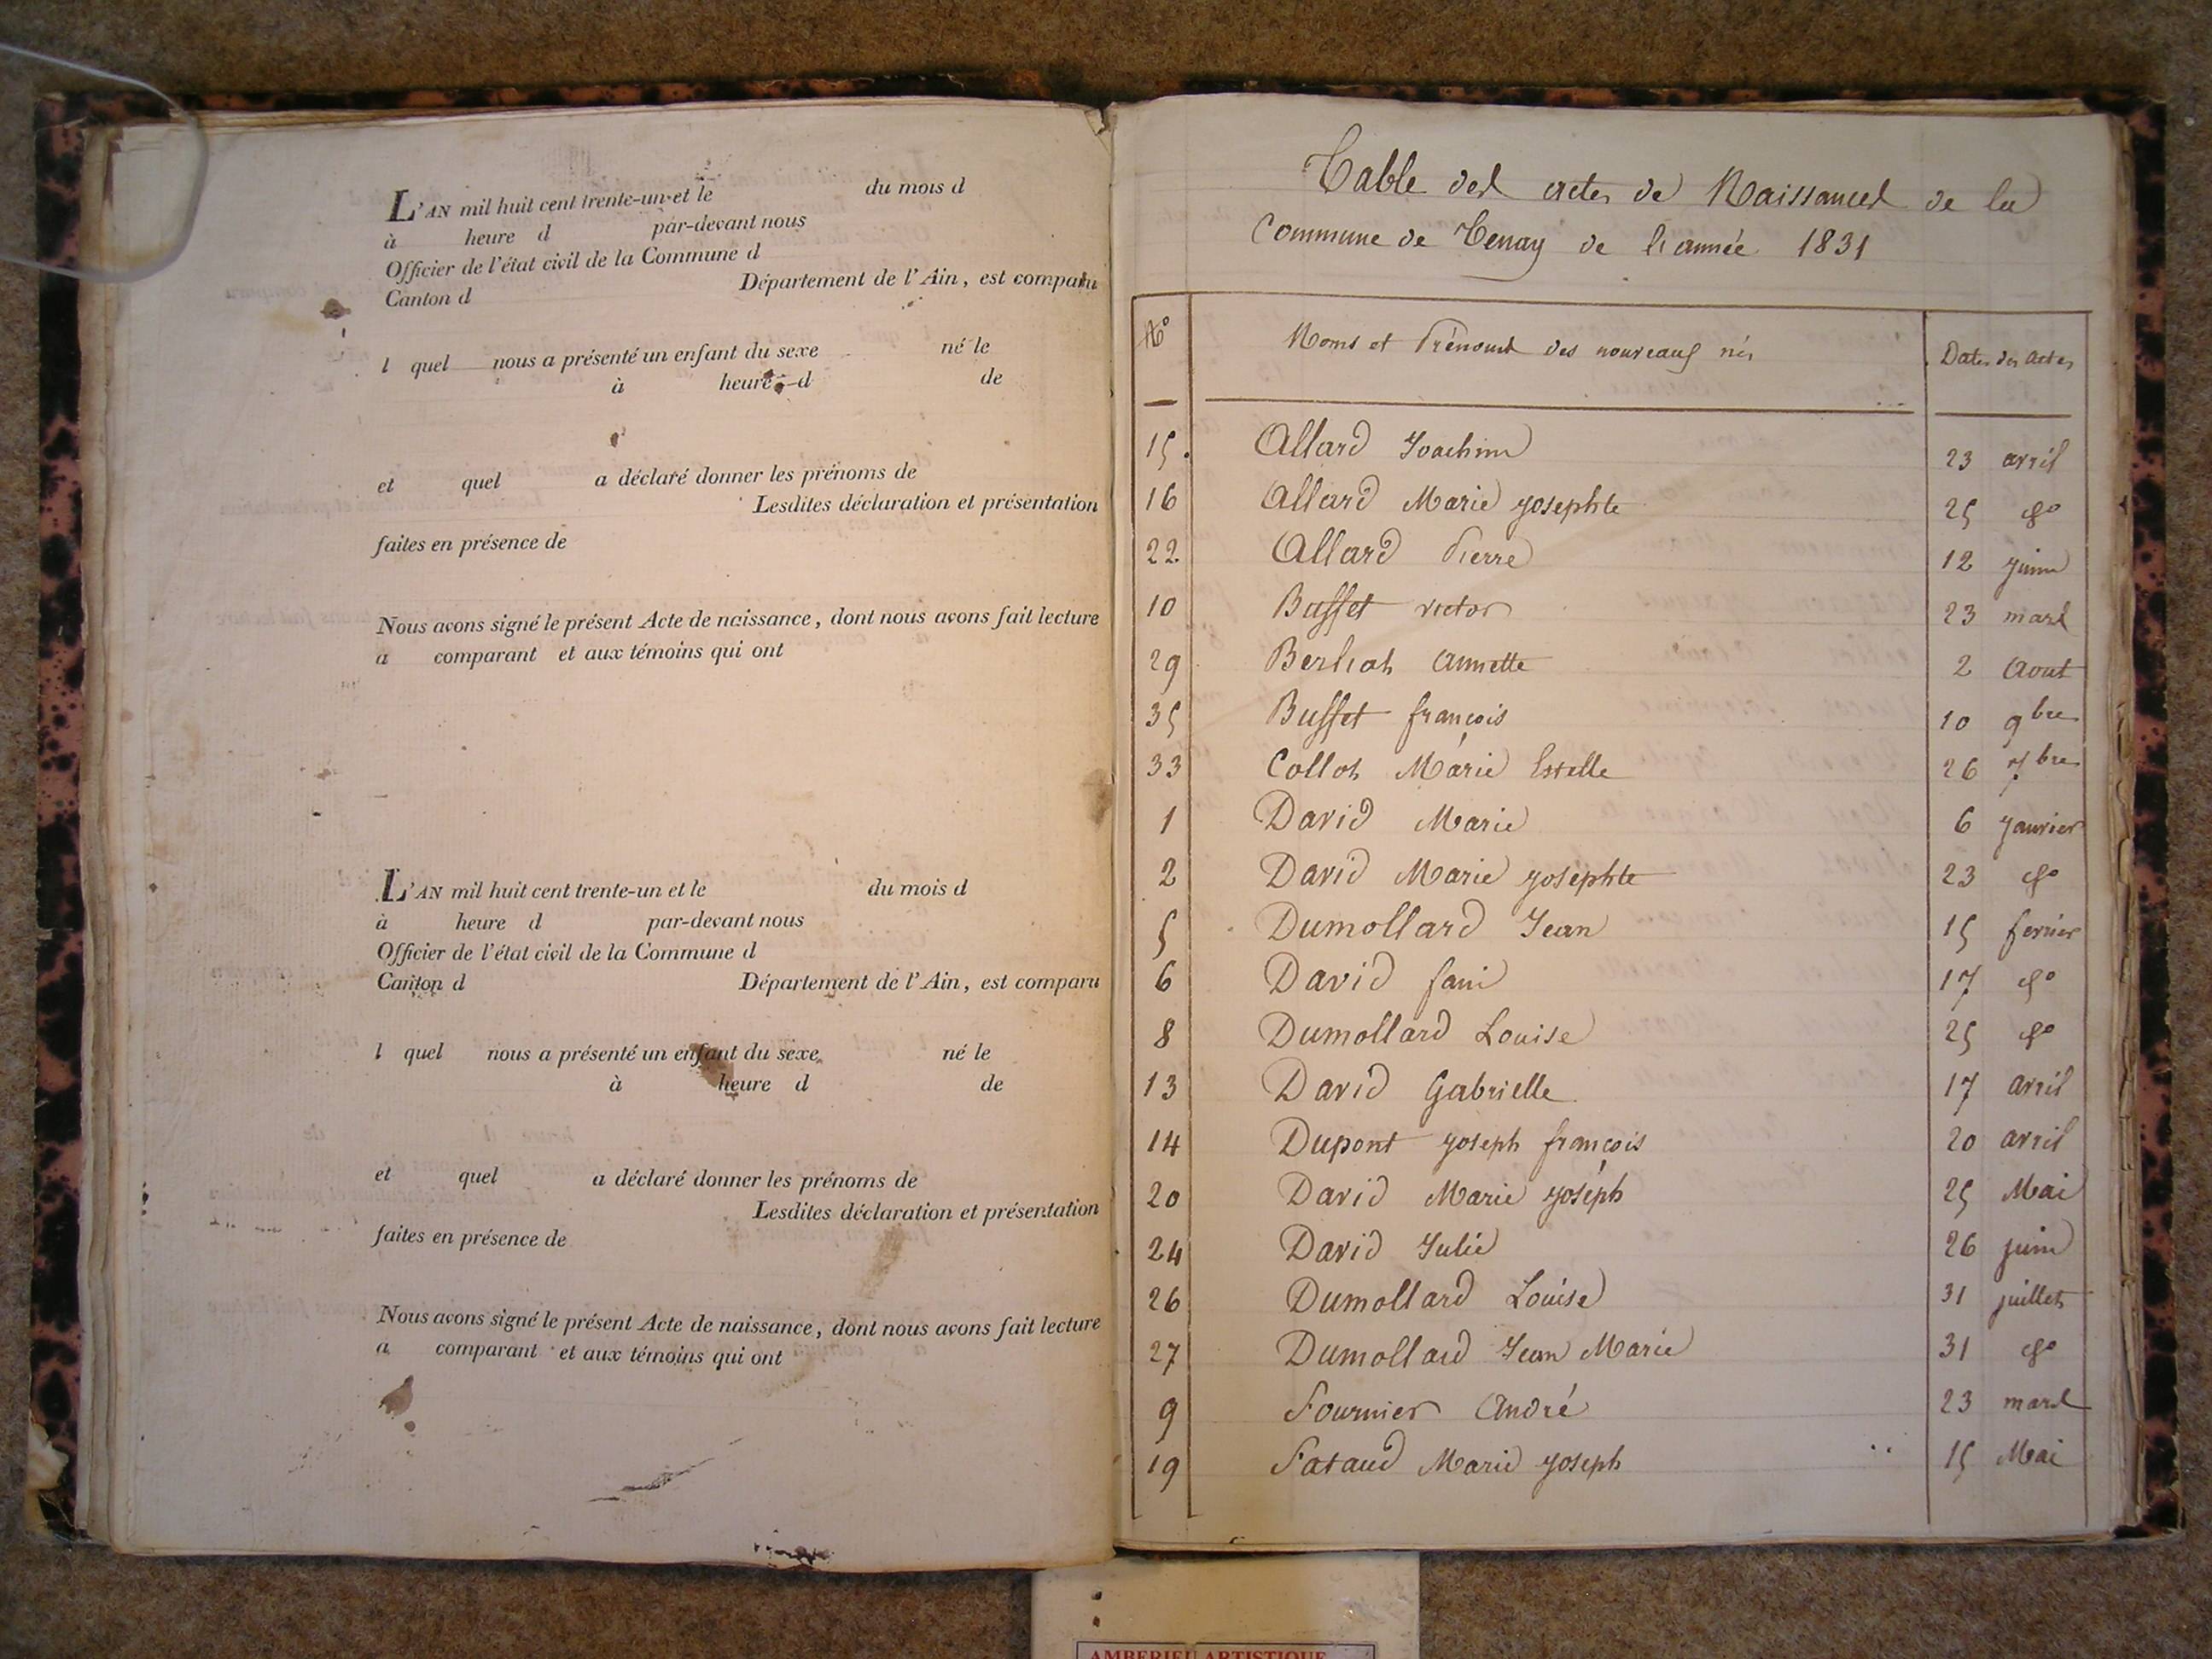 L'AN mil huit cent trente-un et le du mois d
à heure d par-devant nous
Officier de l'état civil de la Commune d
Canton d Département de l'Ain, est comparu
l quel nous a présenté un enfant du sexe né le
à heure d de
et quel a déclaré donner les prénoms de
Lesdites déclaration et présentation
faites en présence de
Nous avons signé le présent Acte de naissance, dont nous avons fait lecture
a comparant et aux témoins qui ont
L'AN mil huit cent trente-un et le du mois d
à heure d par-devant nous
Officier de l'état civil de la Commune d
Canton d Département de l'Ain, est comparu
l quel nous a présenté un enfant du sexe né le
à heure d de
et quel a déclaré donner les prénoms de
Lesdites déclaration et présentation
faites en présence de
Nous avons signé le présent Acte de naissance, dont nous avons fait lecture
a comparant et aux témoins qui ont
Table des actes de Naissances de la
Commune de Tenay de l'année 1831
N° Noms et Prénoms des nouveaux nés Dates des actes
15. Allard Joachim 23 avril
16 Allard Marie josephte 25 do
22 Allard Pierre 12 juin
10 Buffet victor 23 mars
29 Berliat annette 2 Aout
35 Buffet françois 10 9bre
33 Collot Marie Estelle 26 7bre
1 David Marie 6 janvier
2 David Marie josephte 23 do
5 Dumollard Jean 15 fevrier
6 David fani 17 do
8 Dumollard Louise 25 do
13 David Gabrielle 17 avril
14 Dupont joseph françois 20 avril
20 David Marie joseph 25 Mai
24 David Julie 26 juin
26 Dumollard Louise 31 juillet
27 Dumollard Jean Marie 31 do
9 Fournier André 23 mars
19 Fataud Marie joseph 15 Mai
AMBERIEU ARTISTIQUE